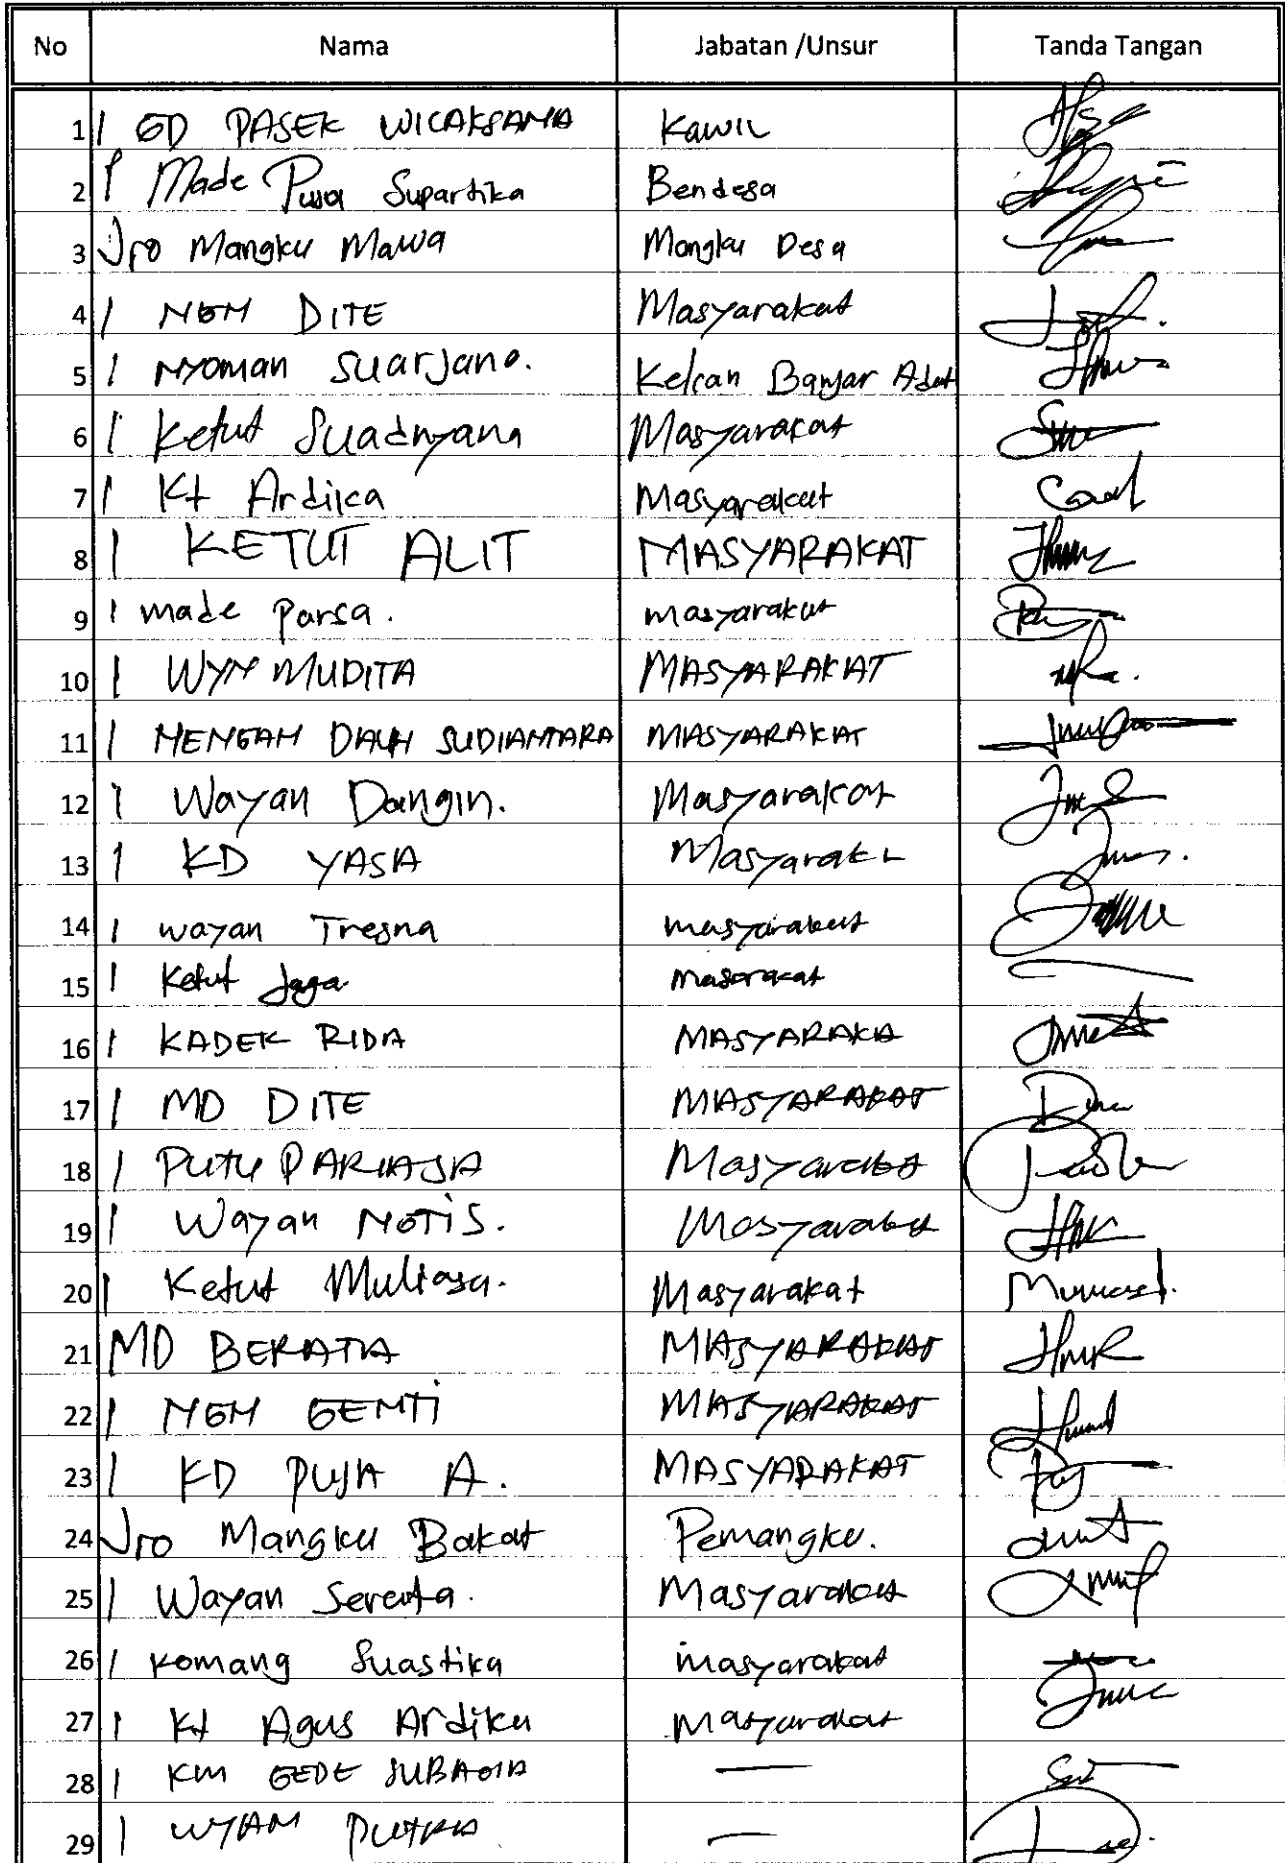 No Nama Jabatan /Unsur Tanda Tangan
1 I GD PASEK WICAKSANA Kawil
2 I Made Puja Supartika Bendesa
3 Jro Mangku Mawa Mangku Desa
4 I NGM DITE Masyarakat
5 I Nyoman Suarjana. Kelian Banjar Adat
6 I Ketut Suadnyana Masyarakat
7 I Kt Ardika Masyarakat
8 I KETUT ALIT MASYARAKAT
9 I made Parsa. masyarakat
10 I WYN MUDITA MASYARAKAT
11 I NENGAH DAUH SUDIANTARA MASYARAKAT
12 I Wayan Dangin. Masyarakat
13 I KD YASA Masyarak
14 I wayan Tresna masyarakat
15 I Ketut Jaga masarakat
16 I KADEK RIDA MASYARAKA
17 I MD DITE MASYARAKAT
18 I PUTU PARIASA Masyarakat
19 I Wayan NOTIS. Masyarakat
20 I Ketut Muliasa. Masyarakat
21 MD BERATA MASYARAKAT
22 I NGM GENTI MASYARAKAT
23 I KD PUJA A. MASYARAKAT
24 Jro Mangku Bakat Pemangku.
25 I Wayan Serenta. Masyarakat
26 I Komang Suastika masyarakat
27 I Kt Agus Ardika Masyarakat
28 I KM GEDE SUBAGIA —
29 I WYAN PUTRA —